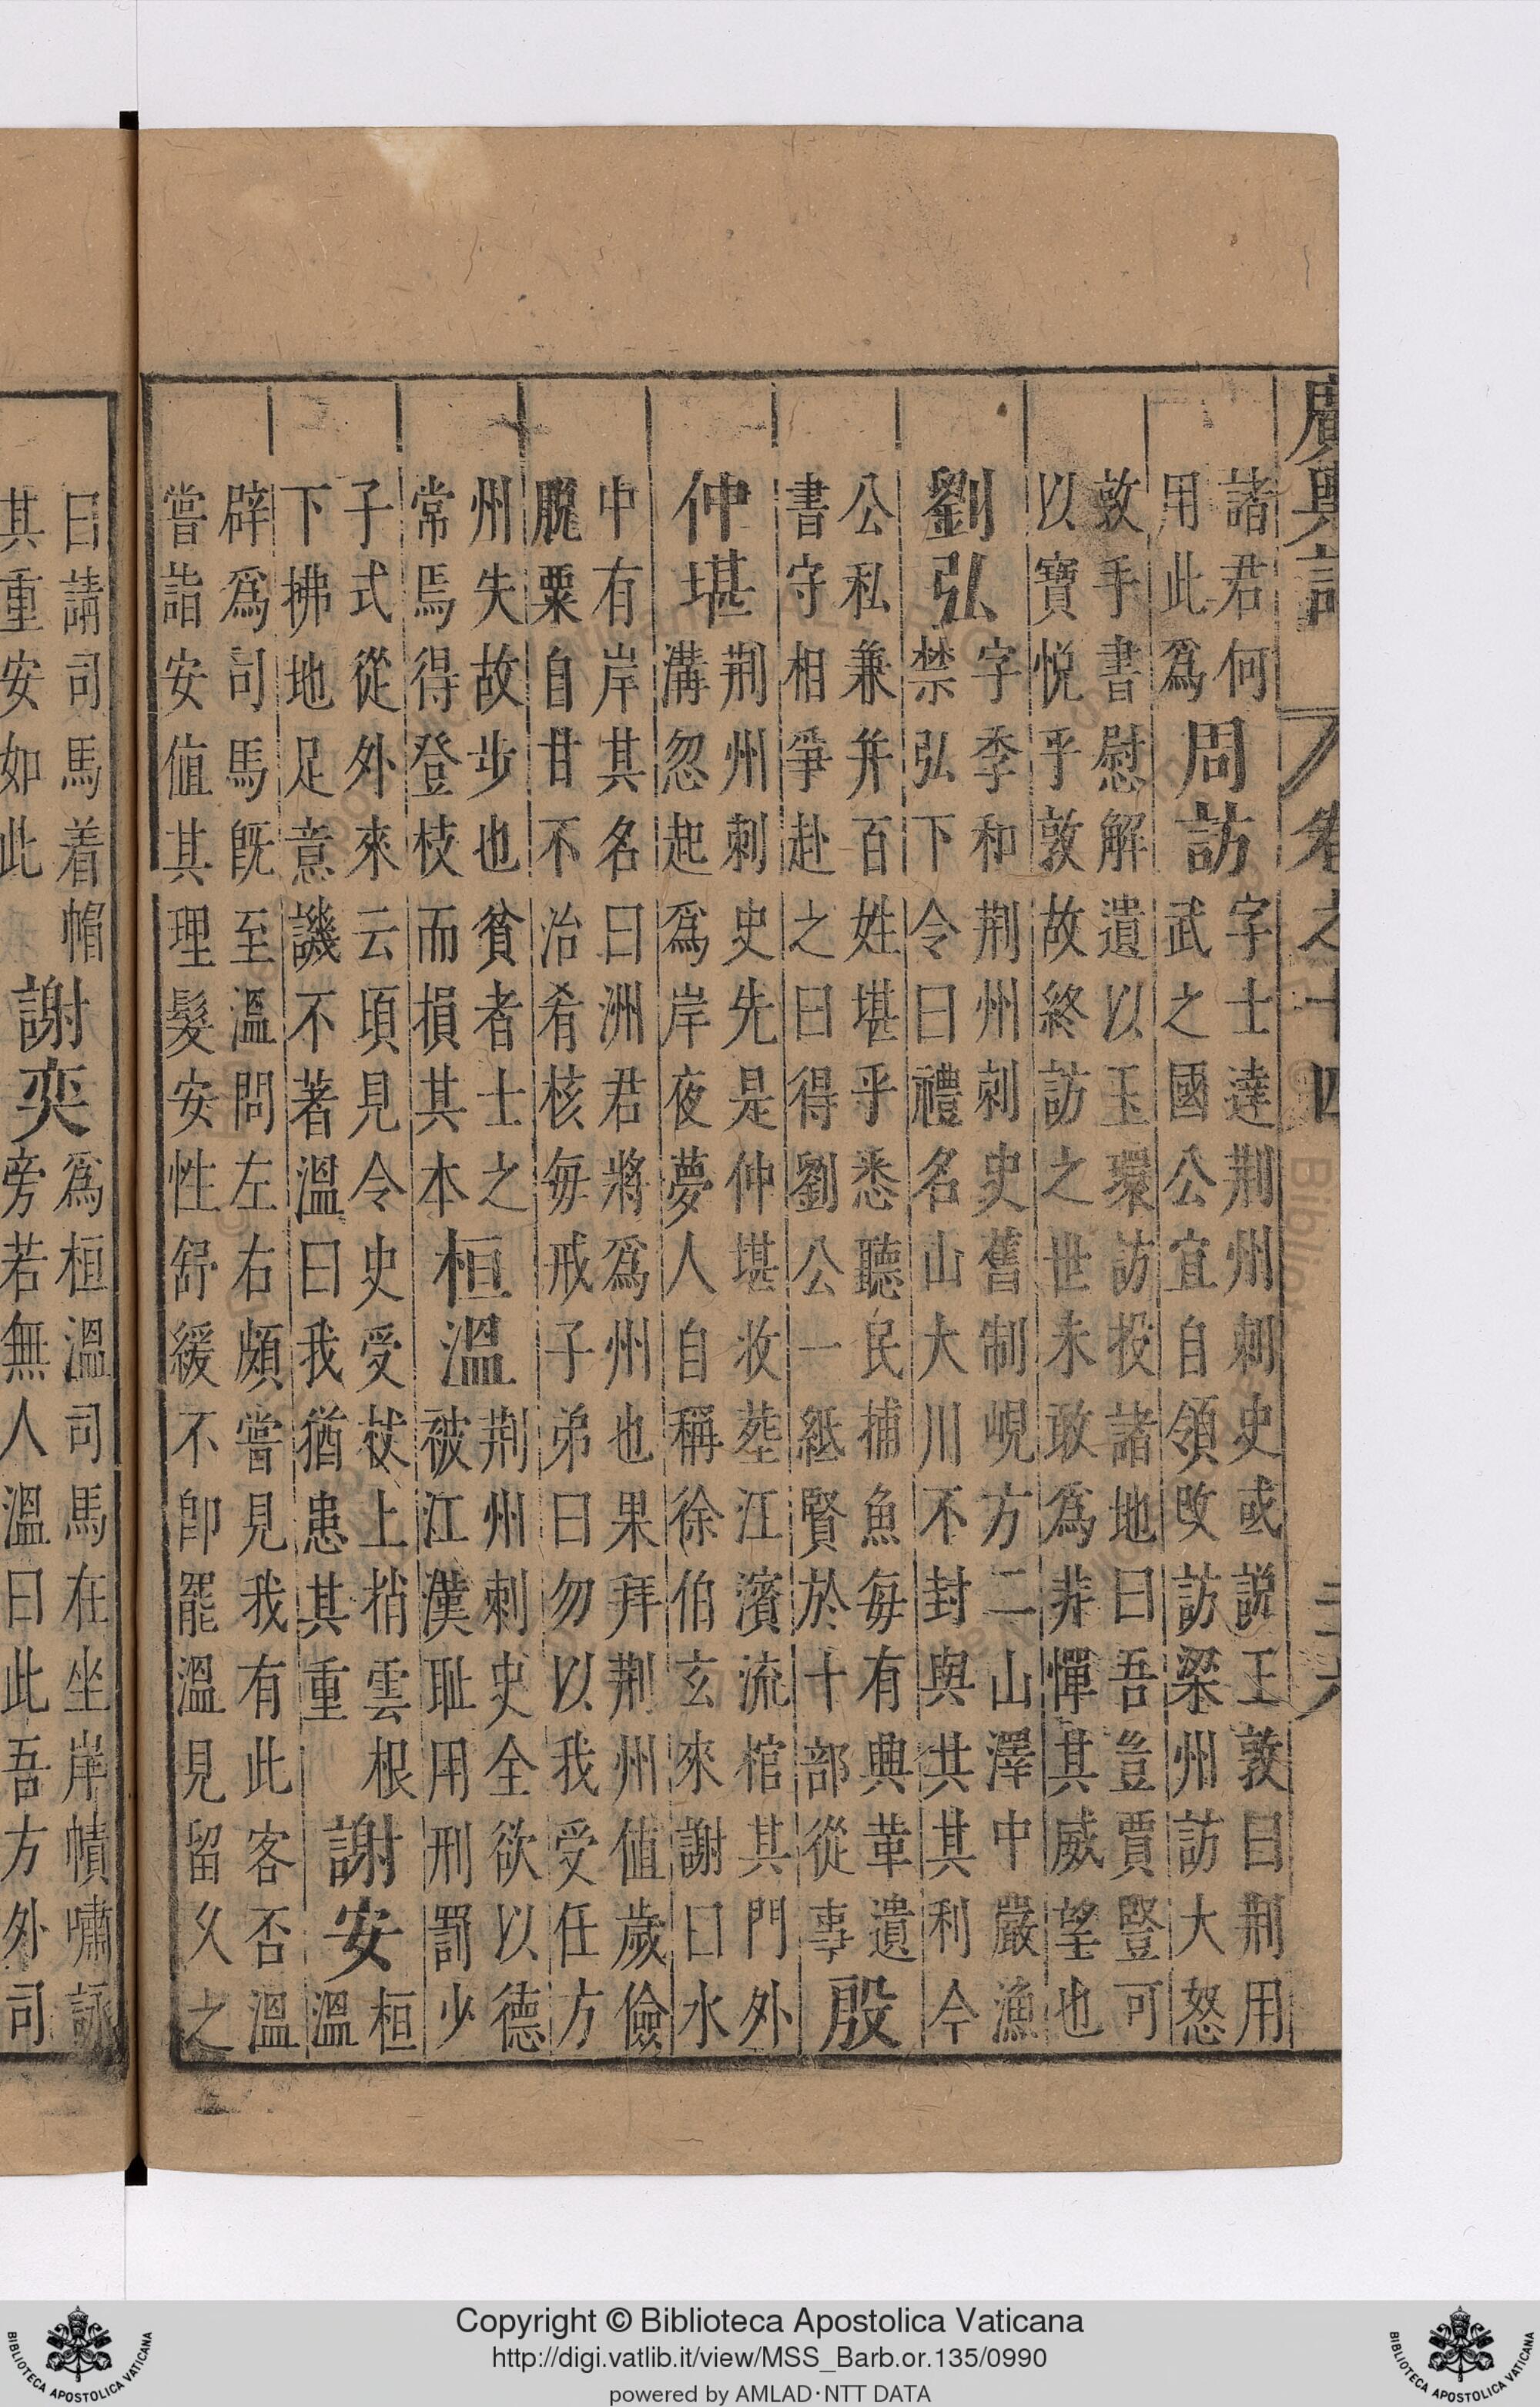 廣輿記 卷之十四
諸君何
用此爲
周訪
字士達荆州刺史或説王敦曰荆用
武之國公宜自領改訪梁州訪大怒
敦手書慰解遺以玉環訪投諸地曰吾豈賈豎可
以寶悦乎敦故終訪之世未敢爲非憚其威望也
劉弘
字季和荆州刺史舊制峴方二山澤中嚴漁
禁弘下令曰禮名山大川不封與共其利今
公私兼并百姓堪乎悉聽民捕魚每有典革遺
書守相爭赴之曰得劉公一紙賢於十部從事
殷
仲堪
荆州刺史先是仲堪收塟江濱流棺其門外
溝忽起爲岸夜夢人自稱徐伯玄來謝曰水
中有岸其名曰洲君將爲州也果拜荆州值歲儉
粟自甘不治肴核每戒子弟曰勿以我受任方
州失故步也貧者士之
常焉得登枝而損其本
桓溫
荆州刺史全欲以德
被江漢耻用刑罰少
子式從外來云頃見令史受杖上捎雲根
下拂地足意譏不著溫曰我猶患其重
謝安
桓
溫
辟爲司馬旣至溫問左右頗嘗見我有此客否溫
嘗詣安值其理髮安性舒緩不卽罷溫見留久之
曰請司馬着帽
其重安如此
謝奕
爲桓溫司馬在坐岸幘嘯詠
旁若無人溫曰此吾方外司
Copyright © Biblioteca Apostolica Vaticana
http://digi.vatlib.it/view/MSS_Barb.or.135/0990
powered by AMLAD·NTT DATA
BIBLIOTECA APOSTOLICA VATICANA
BIBLIOTECA APOSTOLICA VATICANA